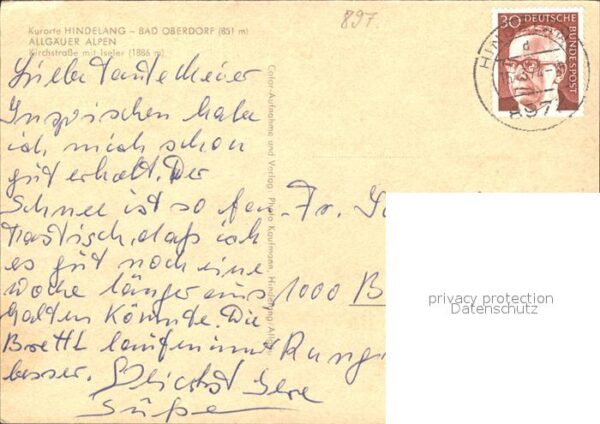 897.
Kurorte HINDELANG – BAD OBERDORF (851 m)
ALLGÄUER ALPEN
Kirchstraße mit Iseler (1886 m)
30 DEUTSCHE BUNDESPOST
897
Liebe Tante Meier
Inzwischen habe
ich mich schon
gut erholt. Der
Schnee ist so fan-
tastisch, daß ich
es gut noch eine
Woche länger aus
halten könnte. Die
Brettl laufen immer
besser.
Fr.
1000 B
Rung
Color-Aufnahme und Verlag: Photo Kaufmann, Hindelang/Allgäu
privacy protection
Datenschutz